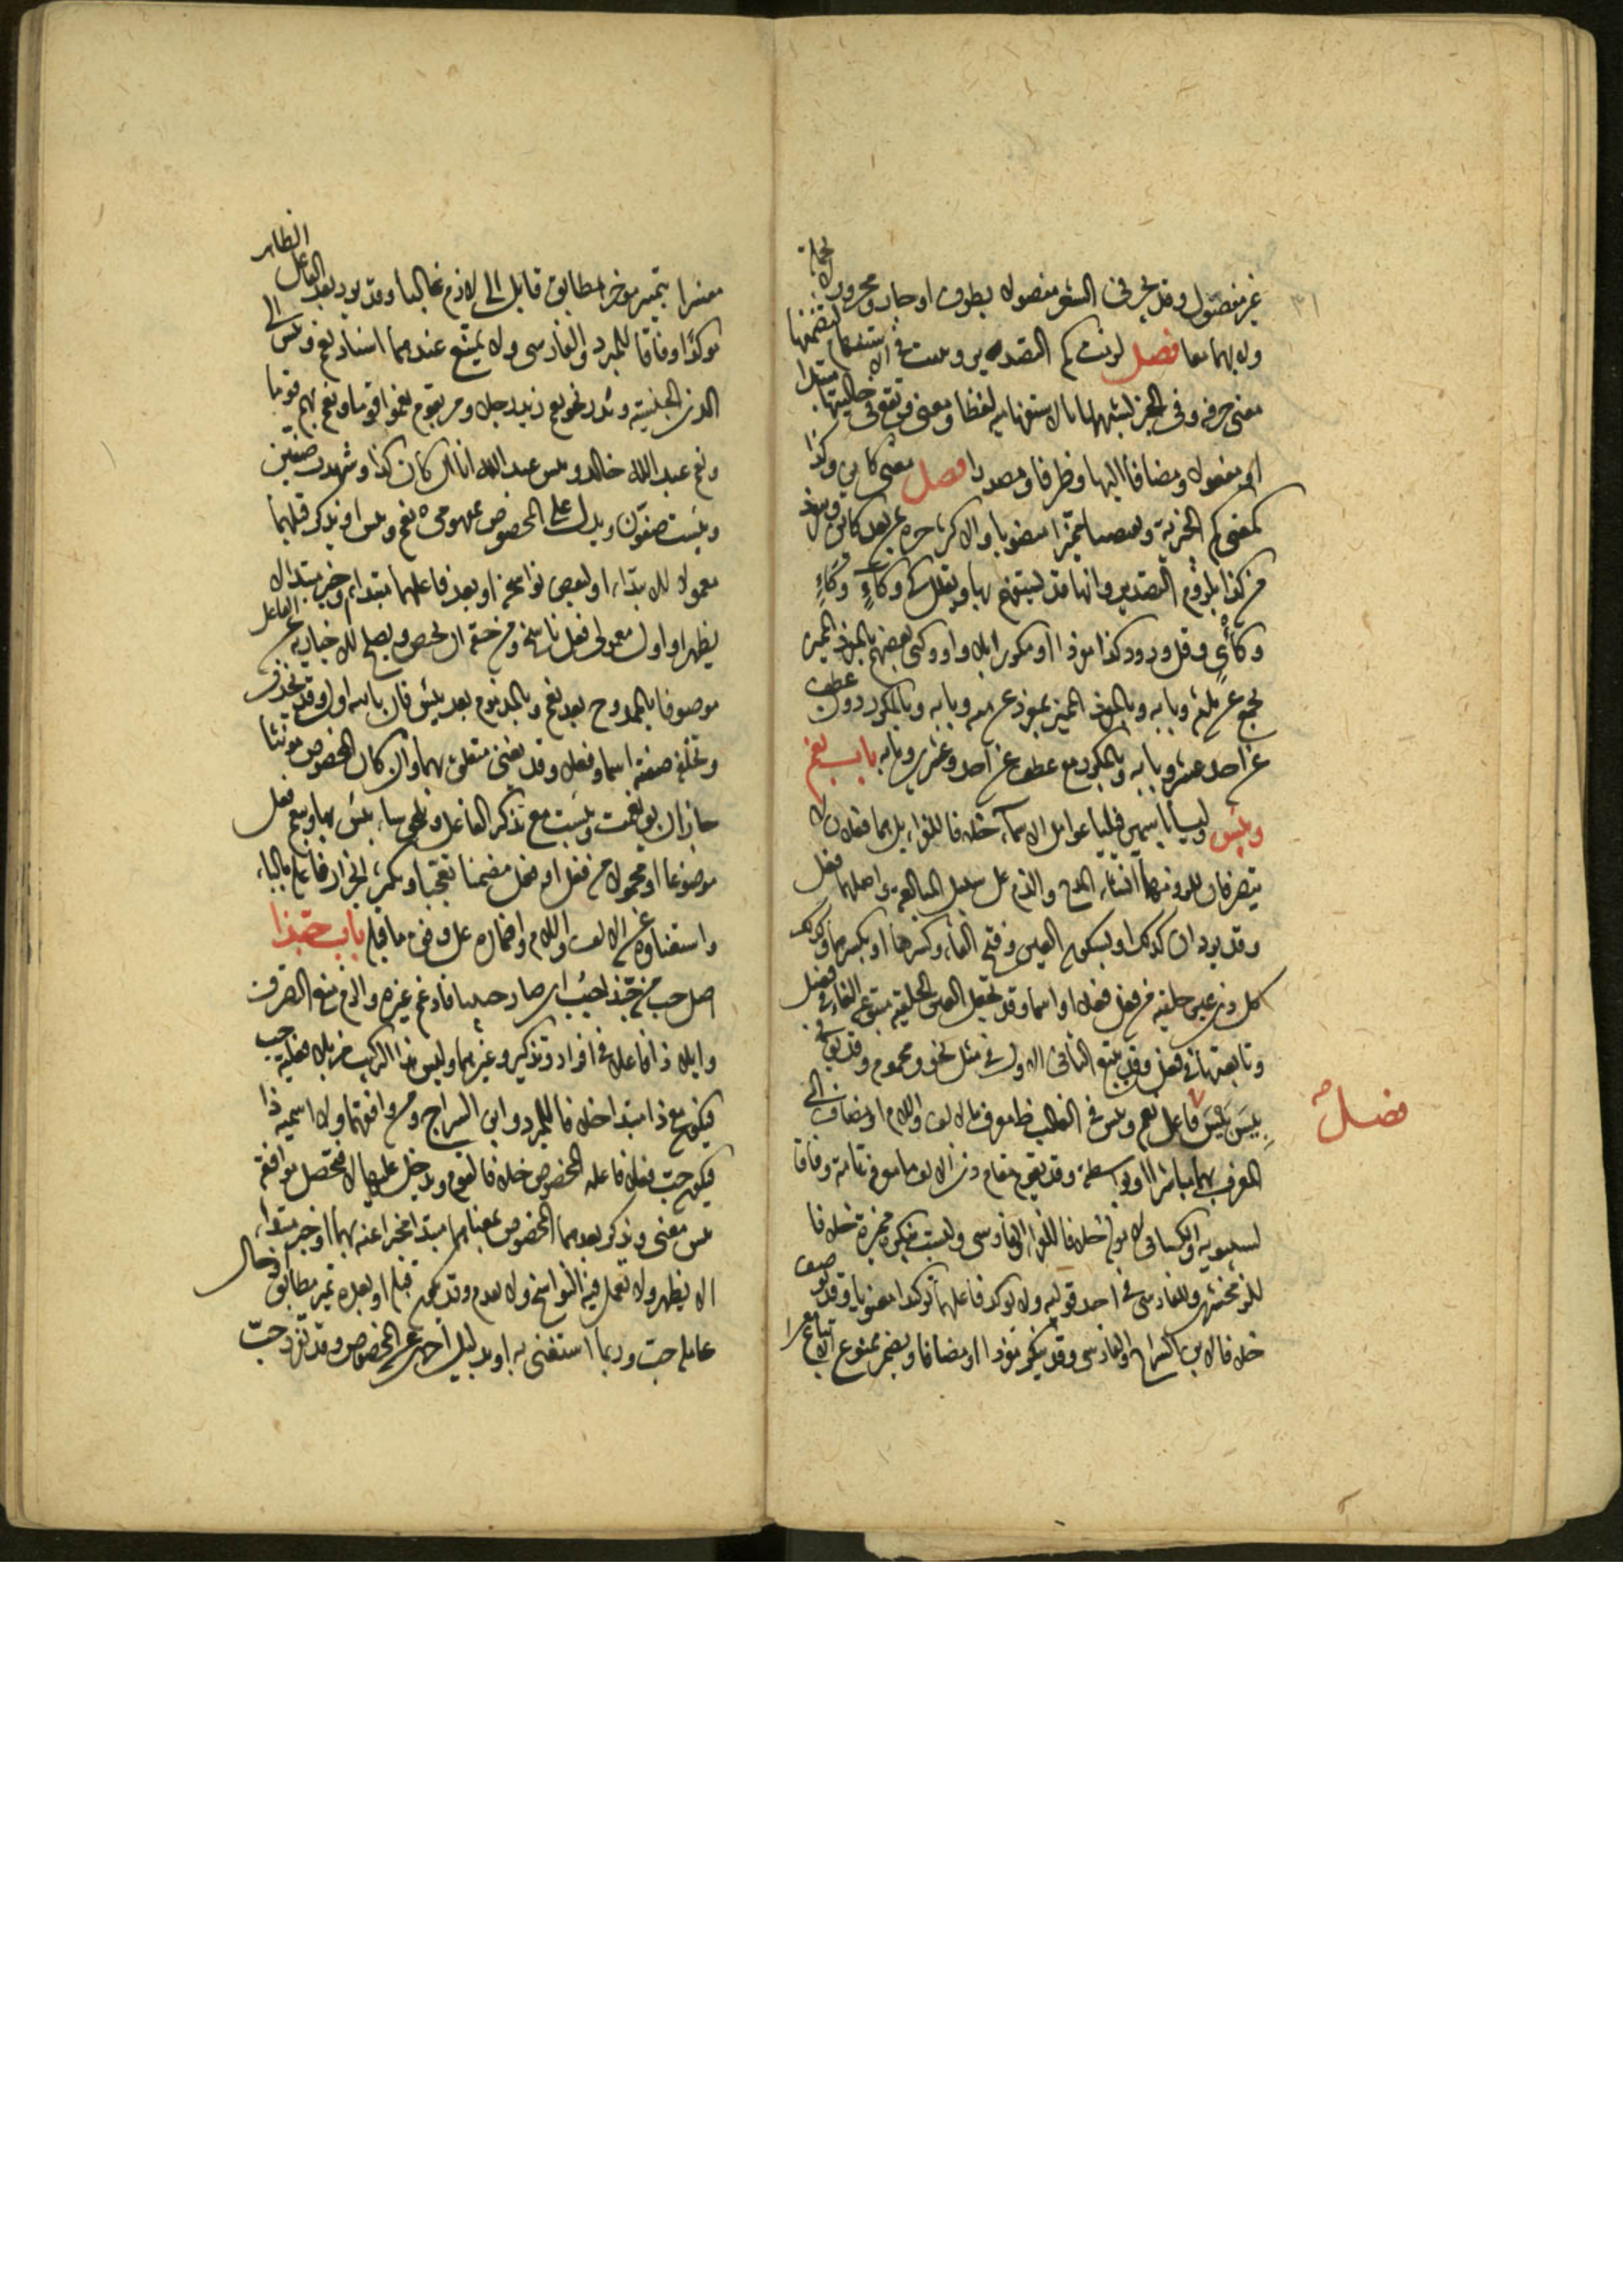 غير مفصول وقد يجر في الشعر مفصولا بظرف او جار ومجرور لا بجملة
ولا بهما معا فصل لزمت كم التصدير وبنيت في الاستفهام لتضمنها
معنى حرفه وفي الخبر لشبهها بالاستفهامية لفظا ومعنى وتقع في حاليتها مبتدا
او مفعولا ومضافا اليها وظرفا ومصدرا فصل معنى كاين وكذا
كمعنى كم الخبرية ويقتضيان مميزا منصوبا والاكثر جره بمن بعد كاين وتنفرد
من كذا بلزوم التصدير وانها قد يستفهم بها ويقال كئ وكاءٍ وكاءٍ
وكأيٍ وقل ورود كذا مفردا او مكورا بلا واو وكنى بعضهم بالمفرد المميز
بجمع عن ثلثة وبابه وبالمفرد المميز بمفرد عن مئة وبابه وبالمكرر دون عطف
عن احد عشر وبابه وبالمكرر مع عطف عن احد وعشرين وبابه باب نعم
وبئس وليسا باسمين فيليا عوامل الاسماء خلافا للفراء بل هما فعلان لا
يتصرفان للزومهما انشاء المدح والذم على سبيل المبالغة واصلهما فعل
وقد يردان كذلك او بسكون العين وفتح الفاء وكسرها او بكسرهما وكذلك
كل ذي عين حلقية من فعل فعلا او اسما وقد تجعل العين الحلقية متبوعة الفاء في فعيل
وتابعتها في فعل وقد يتبع الثاني الاول في مثل نحو ومحموم وقد يقال في
بِيسَ بَيْسَ فاعل نعم وبئس في الغالب ظاهر معرف بالالف واللام او مضاف الى
فصل صح
المعرف بهما مباشرا او بواسطة وقد يقوم مقام ذي الالف ما معرفة تامة وفاقا
لسيبويه والكسائي لا موصولة خلافا للفراء والفارسي وليست بنكرة مميزة خلافا
للزمخشري وللفارسي في احد قوليه ولا يؤكد فاعلهما توكيدا معنويا وقد يوصف
خلافا لابن السراج والفارسي وقد ينكر مفردا او مضافا ويضمر ممنوع الاتباع
مفسرا بتمييز مؤخر مطابق قابل ال لازم غالبا وقد يرد بعد الفاعل الظاهر
موكدا وفاقا للمبرد والفارسي ولا يمتنع عندهما اسناد نعم وبئس الى
الذي الجنسية وندر نحو نعم زيد رجلا ومر بقوم نعموا قوما ونعم بهم قوما
ونعم عبد الله خالد وبئس عبد الله انا ان كان كذا وشهدت صفين
وبئست صفون ويدل على المخصوص بمفهومي نعم وبئس او يذكر قبلهما
معمولا للابتداء او لبعض نواسخه او بعد فاعلهما مبتدا او خبر مبتدا لا
يظهر او اول معمولي فعل ناسخ ومن حقه ان يختص ويصلح للاخبار به عن الفاعل
موصوفا بالممدوح بعد نعم وبالمذموم بعد بئس فان باينه اول وقد يحذف
وتخلفه صفته اسما وفعلا وقد يغني متعلق بهما وان كان المخصوص مؤنثا
جاز ان يق نعمت وبئست مع تذكر الفاعل وتلحق ساء ببئس وبها وبنعم فعل
موضوعا او محولا من فعل او فعل مضمنا تعجبا ويكثر انجرار فاعله بالباء
واستغناؤه عن الالف واللام واضماره على وفق ما قبله باب حبذا
اصل حب من حبذا حبب اي صار حبيبا فادغم كغيره والزم منع التصرف
وايلاء ذا فاعلا في افراد وتذكير وغيرهما وليس هذا التركيب مزيلا فعلية حب
فيكون مع ذا مبتدا خلافا للمبرد وابن السراج ومن وافقهما ولا اسمية ذا
فيكون حب فعلا فاعله المخصوص خلافا لقوم وتدخل عليها لا فتحصل موافقة
بئس معنى ويذكر بعدهما المخصوص بمعناهما مبتدا مخبرا عنه بهما او خبر مبتدا
لا يظهر ولا تعمل فيه النواسخ ولا يقدم وقد يكون قبله او بعده تمييز مطابق او حال
عامله حب وربما استغنى به او بدليل اخر عن المخصوص وقد تفرد حب